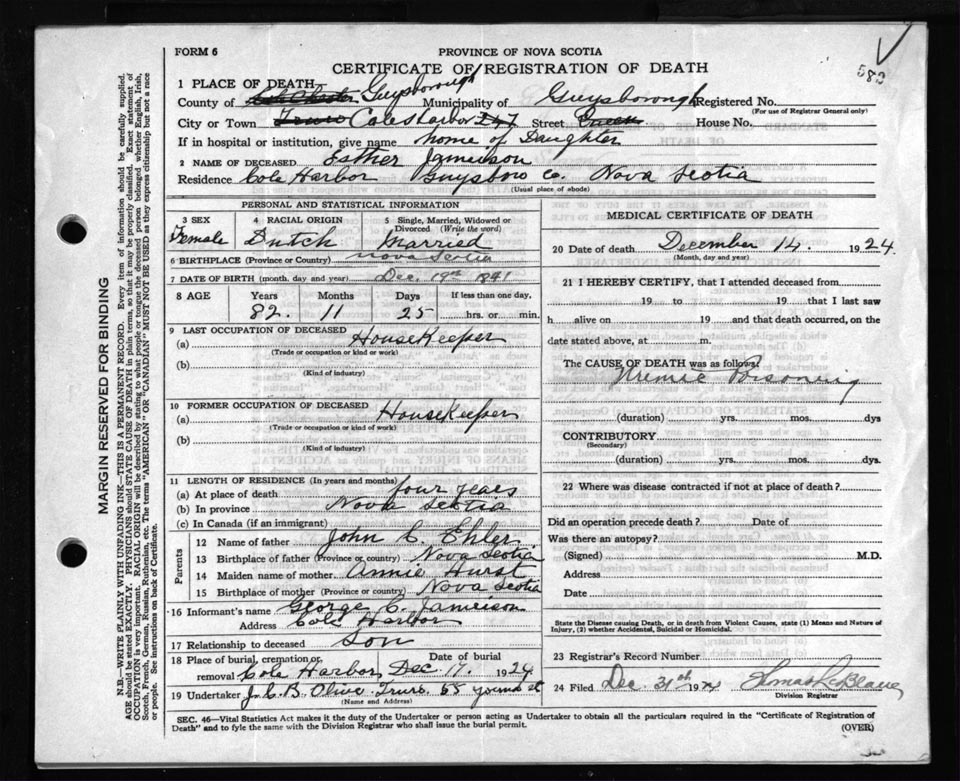 583
FORM 6
PROVINCE OF NOVA SCOTIA
CERTIFICATE OF REGISTRATION OF DEATH
1 PLACE OF DEATH
County of Colchester Guysborough Municipality of Guysborough Registered No.
(For use of Registrar General only)
City or Town Truro Coles Harbor 247 Street Queen House No.
If in hospital or institution, give name home of Daughter
2 NAME OF DECEASED Esther Jamieson
Residence Cole Harbor Guysboro Co. Nova Scotia
(Usual place of abode)
PERSONAL AND STATISTICAL INFORMATION
3 SEX 4 RACIAL ORIGIN 5 Single, Married, Widowed or Divorced (Write the word)
Female Dutch Married
6 BIRTHPLACE (Province or Country) Nova Scotia
7 DATE OF BIRTH (month, day and year) Dec. 19th 1841
8 AGE Years Months Days If less than one day,
82. 11 25 hrs. or min.
9 LAST OCCUPATION OF DECEASED
(a) HouseKeeper
(Trade or occupation or kind or work)
(b)
(Kind of industry)
10 FORMER OCCUPATION OF DECEASED
(a) HouseKeeper
(Trade or occupation or kind of work)
(b)
(Kind of industry)
11 LENGTH OF RESIDENCE (In years and months)
(a) At place of death four years
(b) In province Nova Scotia
(c) In Canada (if an immigrant)
Parents
12 Name of father John C. Ehler
13 Birthplace of father (Province or country) Nova Scotia
14 Maiden name of mother Annie Hurst
15 Birthplace of mother (Province or country) Nova Scotia
16 Informant's name George C. Jamieson
Address Cole Harbor
17 Relationship to deceased Son
18 Place of burial, cremation or removal Date of burial
Cole Harbor Dec. 17. 1924
19 Undertaker J.C.B. Olive Truro. 65 st
(Name and Address)
MEDICAL CERTIFICATE OF DEATH
20 Date of death December 14. 1924.
(Month, day and year)
21 I HEREBY CERTIFY, that I attended deceased from
19 to 19 that I last saw
h alive on 19 and that death occurred, on the
date stated above, at m.
The CAUSE OF DEATH was as follows:
Uremic Poisoning
(duration) yrs. mos. dys
CONTRIBUTORY
(Secondary)
(duration) yrs. mos. dys.
22 Where was disease contracted if not at place of death?
Did an operation precede death? Date of
Was there an autopsy?
(Signed) M.D.
Address
Date
State the Disease causing Death, or in death from Violent Causes, state (1) Means and Nature of Injury, (2) whether Accidental, Suicidal or Homicidal.
23 Registrar's Record Number
24 Filed Dec 31st 1924
Division Registrar
SEC. 46—Vital Statistics Act makes it the duty of the Undertaker or person acting as Undertaker to obtain all the particulars required in the "Certificate of Registration of
Death" and to fyle the same with the Division Registrar who shall issue the burial permit.
(OVER)
MARGIN RESERVED FOR BINDING
N.B.—WRITE PLAINLY WITH UNFADING INK—THIS IS A PERMANENT RECORD. Every item of information should be carefully supplied.
AGE should be stated EXACTLY. PHYSICIANS should STATE CAUSE OF DEATH in plain terms, so that it may be properly classified. Exact statement of
OCCUPATION is very important. RACIAL ORIGIN will be described by stating to what people or tongue the deceased person belonged, whether English, Irish,
Scotch, French, German, Russian, Ruthenian, etc. The terms "AMERICAN" OR "CANADIAN" MUST NOT BE USED as they express citizenship but not a race
or people. See instructions on back of Certificate.